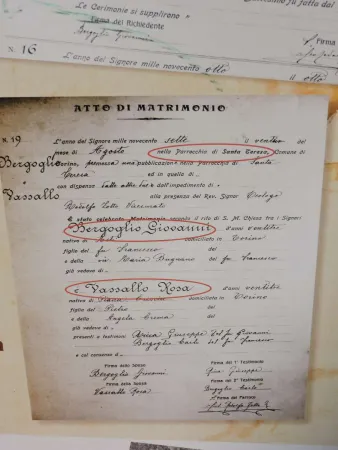 Le Cerimonie si supplirono
Firma del Richiedente
Bergoglio Giovanni
N. 16
L'anno del Signore mille novecento otto
ATTO DI MATRIMONIO
N. 19
Bergoglio
e
Vassallo
L'anno del Signore mille novecento sette il venti
mese di Agosto nella Parrocchia di Santa Teresa Comune di
Torino, premessa una pubblicazione nella Parrocchia di Santa
ed in quella di
con dispensa dalle altre due e dall'impedimento di
alla presenza del Rev. Signor Teologo
È stato celebrato Matrimonio secondo il rito di S. M. Chiesa fra i Signori
Bergoglio Giovanni d'anni ventitre
nativo di domiciliato in Torino
figlio del fu Francesco
e della Maria Bugnano del fu Francesco
già vedovo di
e Vassallo Rosa d'anni ventitre
nativa di Piana domiciliata in Torino
figlia del Pietro
e della Angela Crema
già vedova di
presenti i testimoni Giuseppe del fu Giovanni
Bergoglio Carlo del fu Francesco
e col consenso di
Firma dello Sposo
Bergoglio Giovanni
Firma della Sposa
Vassallo Rosa
Firma del 1° Testimonio
Giuseppe
Firma del 2° Testimonio
Bergoglio Carlo
Firma del Parroco